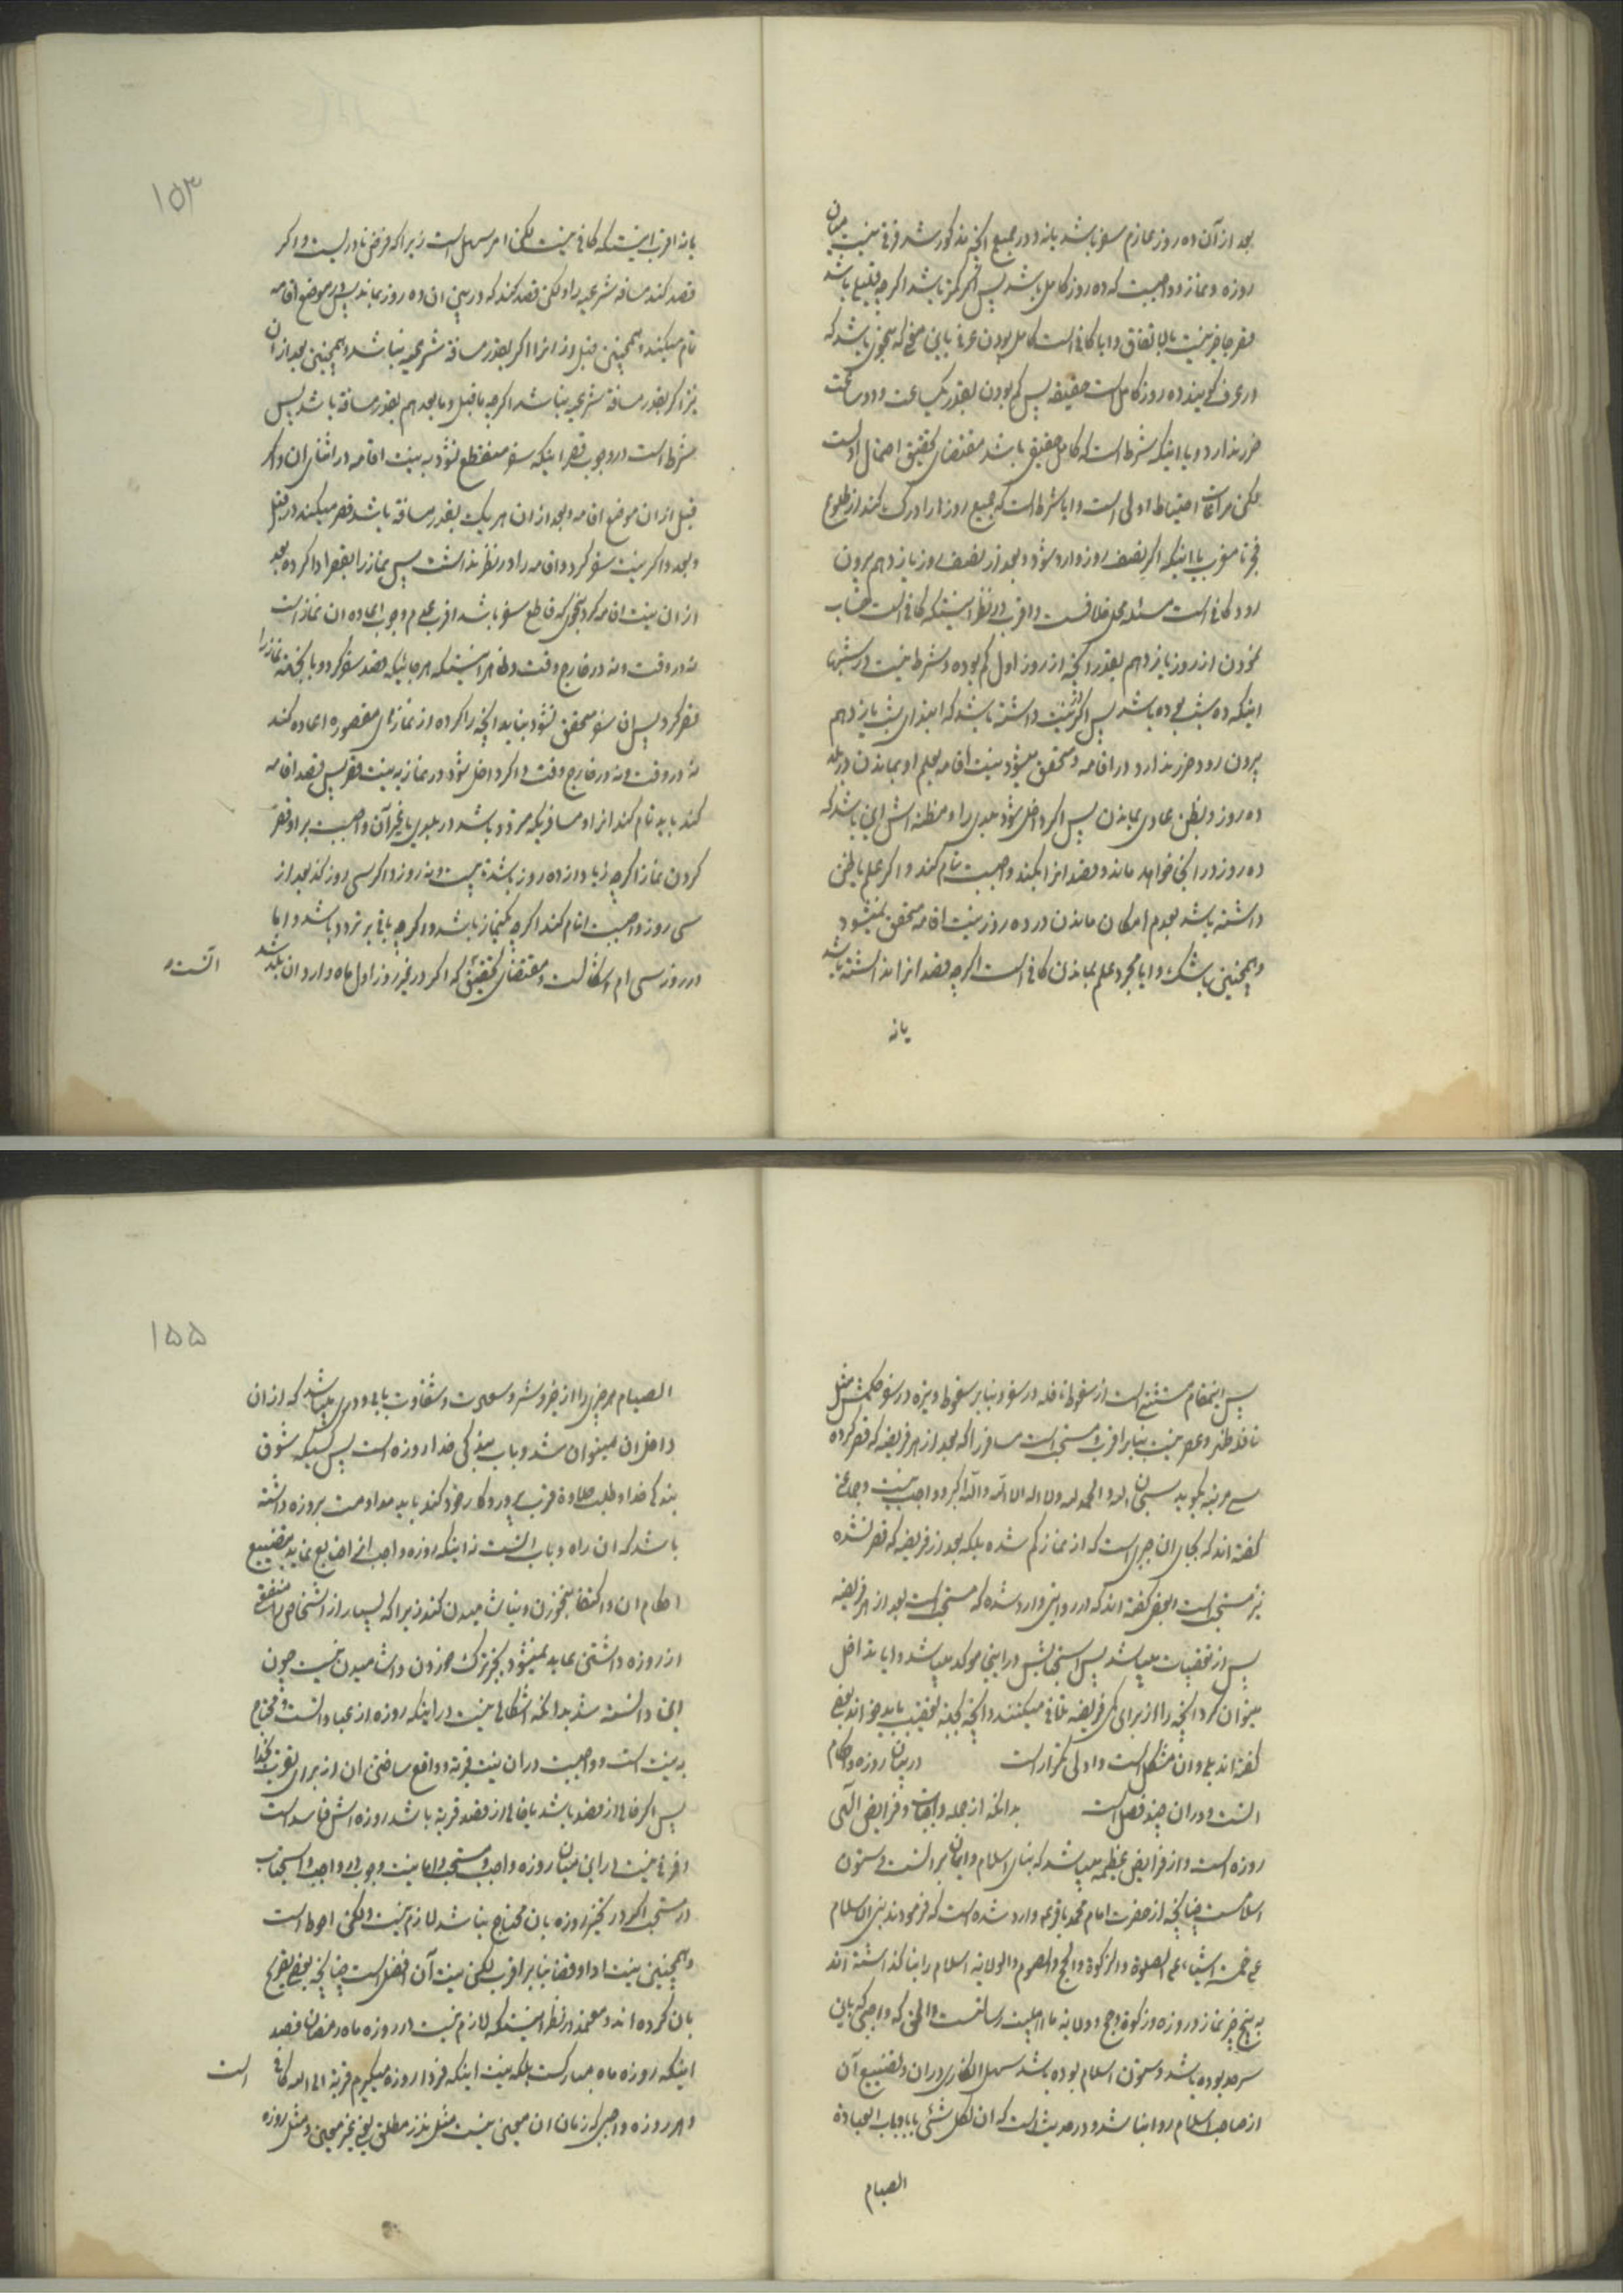 بعد از آن ده روز عازم سفر باشد یا نه و در جمیع آنچه مذکور شد فرقی نیست میان
روزه و نماز و واجبست که ده روز کامل باشد پس اگر کمتر باشد اگر چه قلیلی باشد
قصر جایز نیست بالاتفاق و ایا کافی است کامل بودن عرفی باین معنی که بنحوی باشد که
در عرف گویند ده روز کامل است حقیقه پس کم بودن بقدر یکساعت و دو ساعت
ضرر ندارد و یا اینکه شرط است که کامل حقیقی باشد مقتضای تحقیق احتمال اول است
لکن مراعات احتیاط اولی است و ایا شرط است که جمیع روزها را درک کند از طلوع
فجر تا مغرب یا اینکه اگر نصف روز وارد شود و بعد از نصف روز یازدهم بیرون
رود کافی است مسئله محل خلافست و اقرب در نظر اینستکه کافی است حساب
نمودن از روز یازدهم بقدر آنچه از روز اول کم بوده و شرط نیست در شبها
اینکه ده شب بوده باشد پس اگر نیت داشته باشد که ابتدای شب یازدهم
بیرون رود ضرر ندارد در اقامه و متحقق میشود نیت اقامه بعلم او بماندن در بلد
ده روز و بظن عادی بماندن پس اگر داخل شود بلدی را و مظنه اش این باشد که
ده روز در آنجا خواهد ماند و قصد انرا بکند واجبست تمام کند و اگر علم یا ظن
داشته باشد بعدم امکان ماندن در ده روز نیت اقامه متحقق نمیشود
و همچنین با شک و ایا مجرد علم بماندن کافی است اگر چه قصد انرا نداشته باشد
یا نه
١٥٣
یا نه اقرب اینستکه کافی نیست لکن امر سهل است زیرا که فرض نادریست و اگر
قصد کند مسافه شرعیه را و لکن قصد کند که در بین ان ده روز بماند پس در موضع اقامه
تمام میکند و همچنین قبل از انرا اگر بقدر مسافة شرعیه نباشد و همچنین بعد از ان
نیز اگر بقدر مسافة شرعیه نباشد اگر چه ما قبل و ما بعد هم بقدر مسافة باشد پس
شرط است در وجوب قصر اینکه سفر منقطع نشود به نیت اقامه در اثنای ان و اگر
قبل از ان موضع اقامه و بعد از ان هر یک بقدر مسافة باشد قصر میکند در قبل
و بعد و اگر نیت سفر کرد و اقامه را در نظر نداشت پس نماز را بقصر ادا کرده بعد
از ان نیت اقامه کرد بنحوی که قاطع سفر باشد اقرب عدم وجوب اعاده ان نماز است
نه در وقت و نه در خارج وقت و ظاهر اینستکه هر جائیکه قصد سفر کرد و نماز را
قصر کرد پس ان سفر متحقق نشود نباید آنچه را کرده از نمازهای مقصوره اعاده کند
نه در وقت و نه در خارج وقت و اگر داخل شود در نماز به نیت قصر پس قصد اقامه
کند باید تمام کند انرا و مسافریکه متردد باشد در بلدی یا غیر آن واجبست بر او قصر
کردن نماز اگر چه زیاد از ده روز باشد تا بیست و نه روز و اگر سی روز گذشت بعد از
سی روز واجبست اتمام کند اگر چه یکنماز باشد و اگر چه باقی بر تردد باشد و ایا
در روز سی ام اشکالست و مقتضای تحقیق که اگر در غیر روز اول ماه وارد ان بلد شد
انستکه
پس اینمقام مستثنی است از سقوط نافله در سفر و بنابر سقوط وتیره در سفر حکمش مثل
نافله ظهر و عصر نیست بنابر اقرب و مستحب است مسافر را که بعد از هر فریضه که قصر کرده
سی مرتبه بگوید سبحان الله و الحمد لله و لا اله الا الله و الله اکبر و واجب نیست و جماعتی
گفته اند که بجای ان جبر است که از نماز کم شده بلکه بعد از فریضه که قصر نشده
نیز مستحب است و بعضی گفته اند که در روایتی وارد شده که مستحب است بعد از هر فریضه
پس از تعقیبات میباشد پس استحبابش در اینجا موکد میباشد و ایا تداخل
میتوان کرد آنچه را از برای هر فریضه تلافی میکنند و آنچه بجهة تعقیب باید خواند بعضی
گفته اند بلی و ان مشکل است و اولی تکرار است در بیان روزه و احکام
انست و در ان چند فصل است بدانکه از جمله واجبات و فرایض الهی
روزه است و از فرایض عظیمه میباشد که بنای اسلام و ایمان بر انست و ستون
اسلامست چنانچه از حضرت امام محمد باقر ع وارد شده است که فرمودند بنی الاسلام
علی خمسة اشیاء علی الصلوة و الزکوة و الحج و الصوم و الولایه اسلام را بنا گذاشته اند
به پنج چیز نماز و روزه و زکوة و حج و ولایه ما اهلبیت رسالت و الحق که واجبی که باین
سرحد بوده باشد و ستون اسلام بوده باشد سهل انگاری در ان و تضییع آن
از صاحب اسلام روا نباشد و در حدیث است که ان لکل شئ بابا و باب العبادة
الصیام
١٥٥
الصیام هر چیزی را از خیر و شر و سعادت و شقاوت بابی و دری میباشد که از ان
داخل ان میتوان شد و باب بندگی خدا روزه است پس کسیکه شوق
بندگی خدا و طلب حلاوة قرب پروردگار خود کند باید مداومت بروزه داشته
باشد که ان راه و باب انست نه اینکه روزه واجب را ضایع نماید بتضییع
احکام ان و اکتفا بنخوردن و نیاشامیدن کند زیرا که بسیار از اشخاص را منفعتی
از روزه داشتن عاید نمیشود بجز ترک خوردن و اشامیدن نیست چون
این دانسته شد بدانکه اشکالی نیست در اینکه روزه از عباداتست و محتاج
به نیت است و واجبست در ان نیت قربة و واقع ساختن ان از برای تقرب بخدا
پس اگر خالی از قصد باشد یا خالی از قصد قربة باشد روزه اش فاسد است
و فرقی نیست در این میان روزه واجب و مستحب و اما نیت وجوب در واجب و استحباب
در مستحب اگر در تمیز روزه بان محتاج نباشد لازم نیست و لکن احوط است
و همچنین نیت ادا و قضا بنابر اقرب لکن نیت آن افضل است چنانچه بعضی تصریح
بان کرده اند و معتمد در نظر اینستکه لازم نیست در روزه ماه رمضان قصد
اینکه روزه ماه مبارکست بلکه نیت اینکه فردا روزه میگیرم قربة الی الله کافی
است
و هر روزه واجبی که زمان ان معین نیست مثل نذر مطلق یعنی غیر معین و مثل روزه